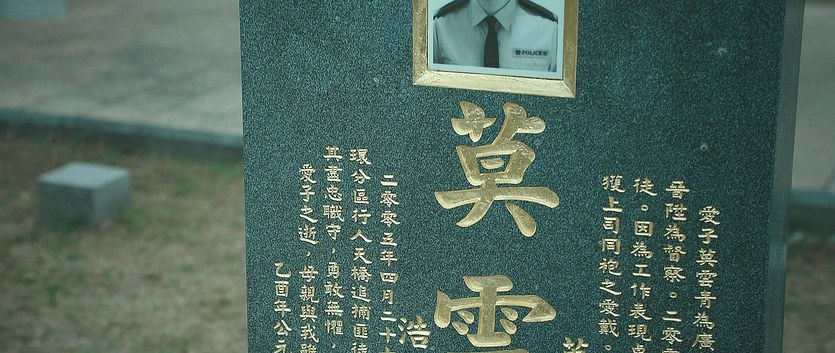 警 POLICE 警察
莫雲
愛子莫雲青為廣
晉陞為督察。二零
徒。因為工作表現
獲上司同袍之愛戴。
浩
二零零五年四月二十
環分區行人天橋追捕匪徒
其盡忠職守，勇敢無懼，
愛子之逝，母親與我
乙酉年公元